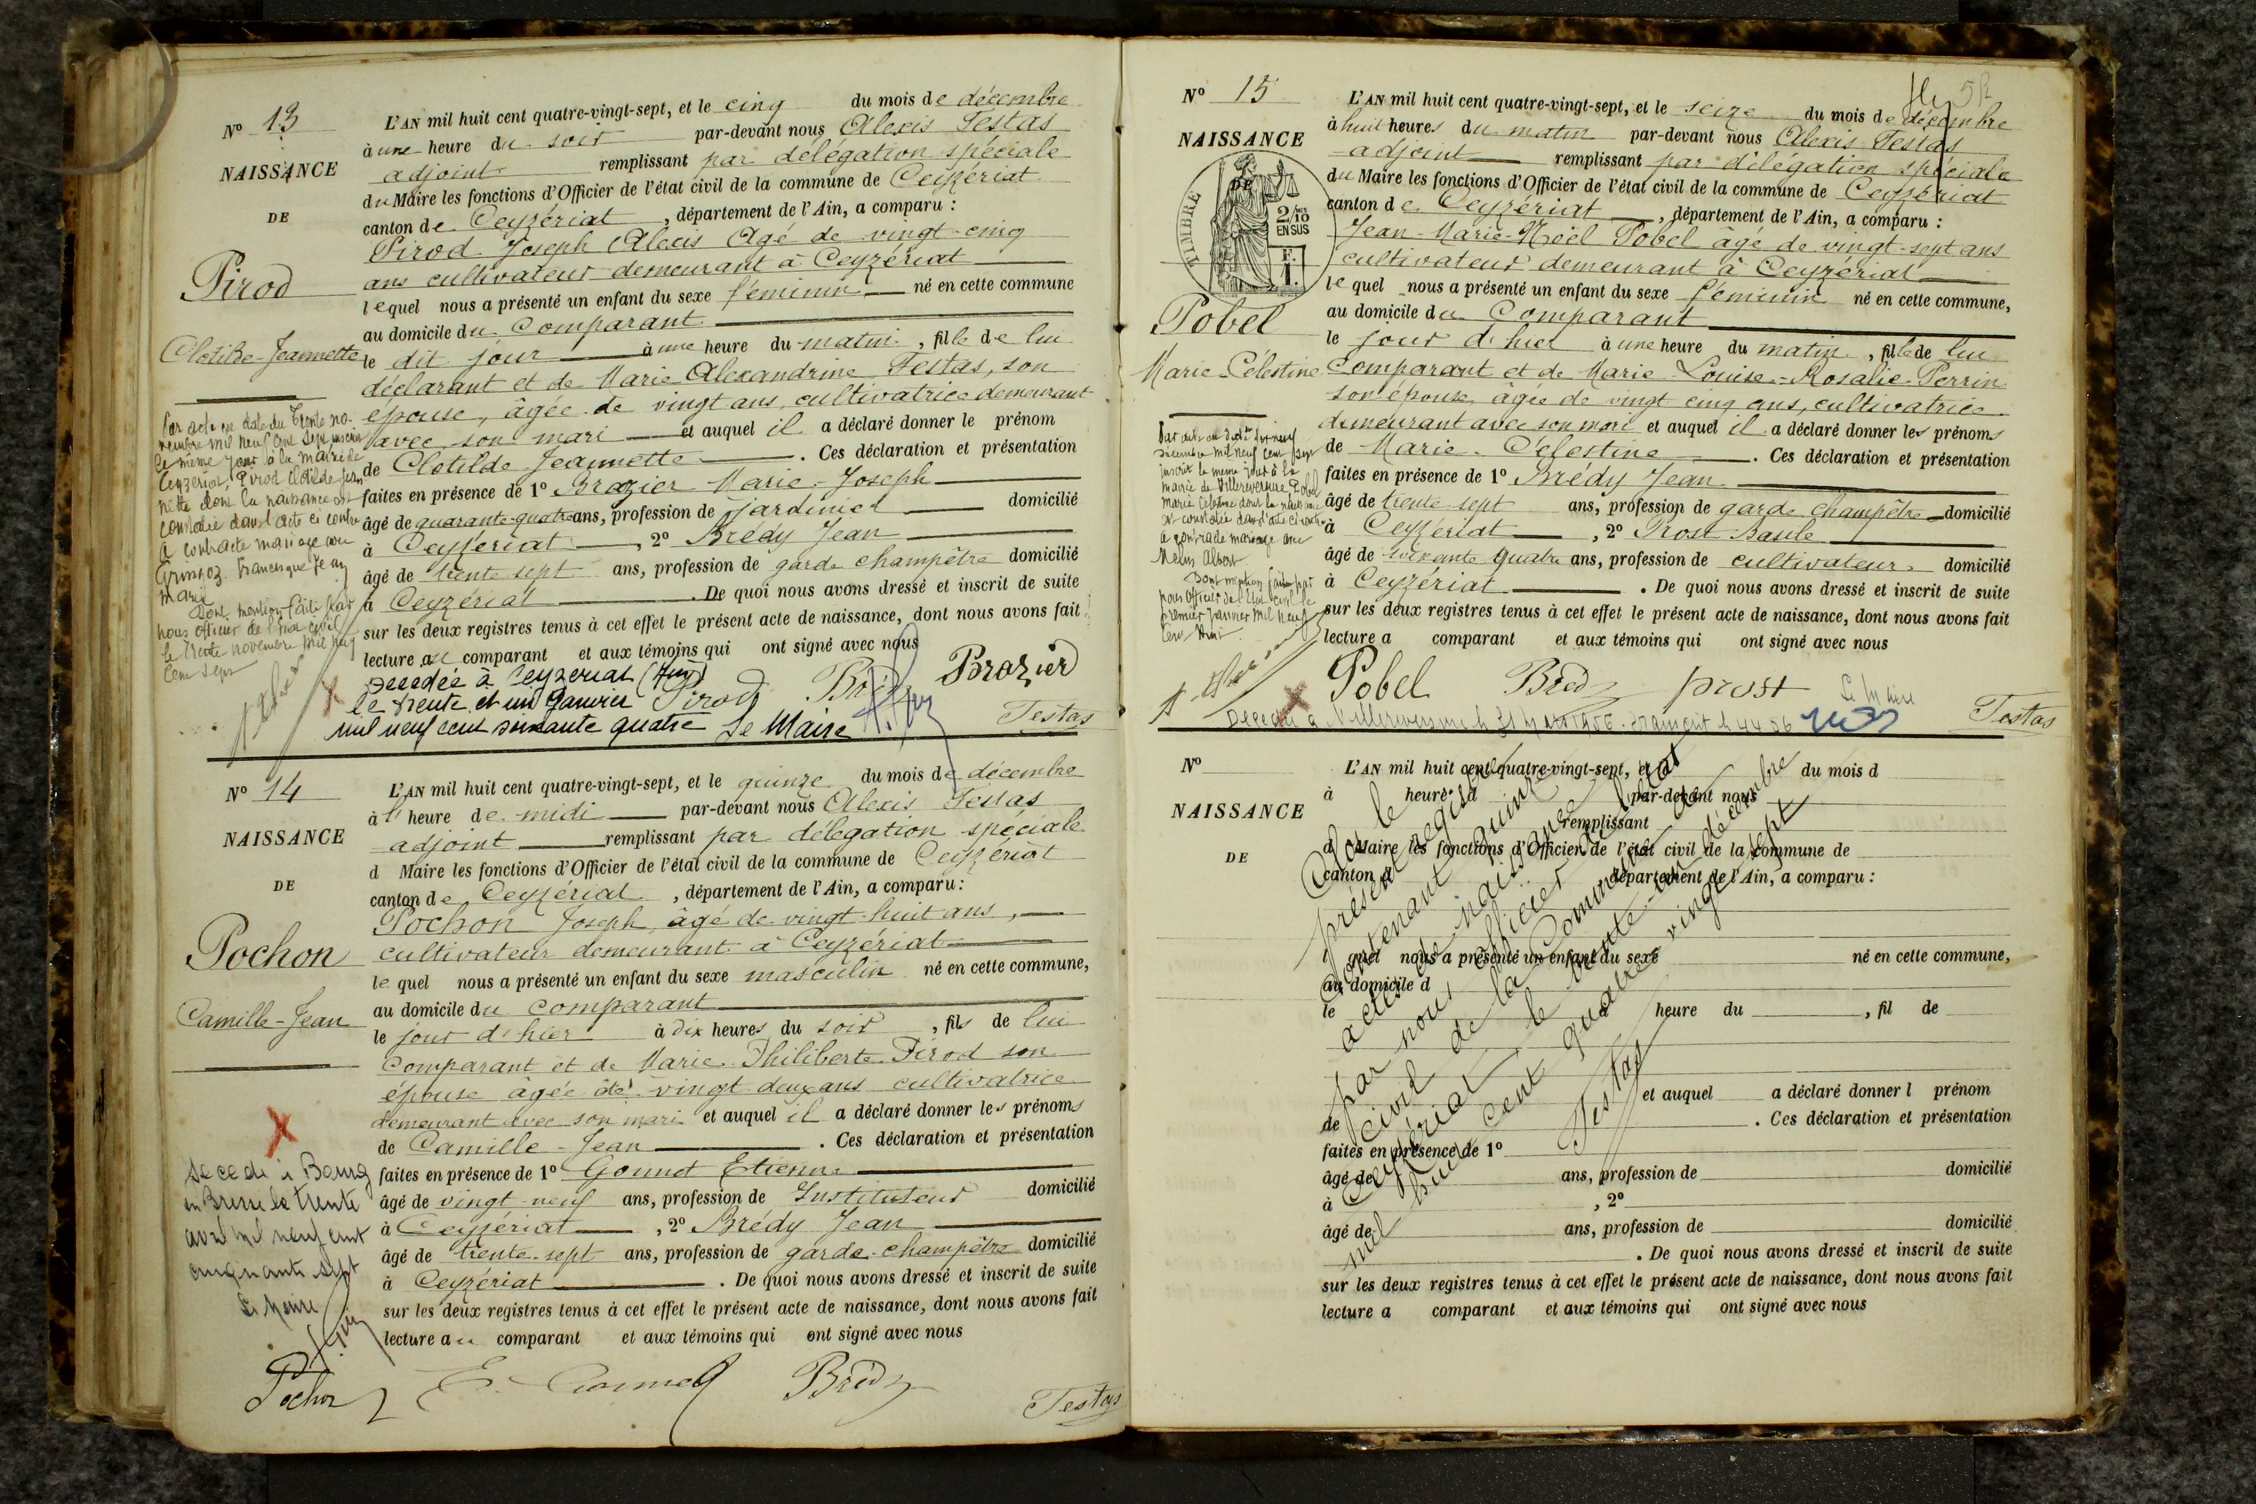 Nº 13
NAISSANCE
DE
Pirod
Clotilde-Jeannette
L'AN mil huit cent quatre-vingt-sept, et le cinq du mois de décembre
à une heure du soir par-devant nous Alexis Testas
adjoint remplissant par délégation spéciale
du Maire les fonctions d'Officier de l'état civil de la commune de Ceyzériat
canton de Ceyzériat, département de l'Ain, a comparu :
Pirod Joseph Alexis Agé de vingt-cinq
ans cultivateur demeurant à Ceyzériat
lequel nous a présenté un enfant du sexe féminin né en cette commune
au domicile du Comparant
le dit jour à une heure du matin, fille de lui
déclarant et de Marie Alexandrine Testas, son
épouse, âgée de vingt ans, cultivatrice demeurant
avec son mari et auquel il a déclaré donner le prénom
de Clotilde Jeannette. Ces déclaration et présentation
faites en présence de 1º Brazier Marie-Joseph
âgé de quarante-quatre ans, profession de jardinier domicilié
à Ceyzériat, 2º Brédy Jean
âgé de trente sept ans, profession de garde champêtre domicilié
à Ceyzériat. De quoi nous avons dressé et inscrit de suite
sur les deux registres tenus à cet effet le présent acte de naissance, dont nous avons fait
lecture au comparant et aux témoins qui ont signé avec nous
Par acte en date du Trente no-
vembre mil neuf cent sept inscrit
le même jour à la mairie de
Ceyzériat, Pirod Clotilde Jean
nette dont la naissance est
constatée dans l'acte ci contre
a contracté mariage avec
francisque Jean
Marie
Dont mention faite par
nous officier de l'état civil
le trente novembre mil neuf
cent sept
Décédée à Ceyzeriat (Ain)
le trente et un Janvier
mil neuf cent soixante quatre Le Maire
Pirod Brédy Brazier
Testas
Nº 14
NAISSANCE
DE
Pochon
Camille-Jean
L'AN mil huit cent quatre-vingt-sept, et le quinze du mois de décembre
à l' heure de midi par-devant nous Alexis Testas
adjoint remplissant par délégation spéciale
d Maire les fonctions d'Officier de l'état civil de la commune de Ceyzériat
canton de Ceyzériat, département de l'Ain, a comparu :
Pochon Joseph, âgé de vingt-huit ans,
cultivateur demeurant à Ceyzériat
lequel nous a présenté un enfant du sexe masculin né en cette commune,
au domicile du comparant
le jour d'hier à dix heures du soir, fils de lui
comparant et de Marie Philiberte Pirod son
épouse âgée de vingt deux ans cultivatrice
demeurant avec son mari et auquel il a déclaré donner les prénoms
de Camille-Jean. Ces déclaration et présentation
faites en présence de 1º Gonnet Etienne
âgé de vingt-neuf ans, profession de Instituteur domicilié
à Ceyzériat, 2º Brédy Jean
âgé de trente-sept ans, profession de garde-champêtre domicilié
à Ceyzériat. De quoi nous avons dressé et inscrit de suite
sur les deux registres tenus à cet effet le présent acte de naissance, dont nous avons fait
lecture au comparant et aux témoins qui ont signé avec nous
Décédé à Bourg
en Bresse le trente
avril mil neuf cent
cinquante sept
Le Maire
Pochon E. Gonnet Brédy
Testas
52
Nº 15
NAISSANCE
DE
TIMBRE
2/10
EN SUS
F.
1.
Pobel
Marie-Célestine
L'AN mil huit cent quatre-vingt-sept, et le seize du mois de décembre
à huit heures du matin par-devant nous Alexis Testas
adjoint remplissant par délégation spéciale
du Maire les fonctions d'Officier de l'état civil de la commune de Ceyzériat
canton de Ceyzériat, département de l'Ain, a comparu :
Jean-Marie-Noël Pobel âgé de vingt-sept ans
cultivateur demeurant à Ceyzériat
lequel nous a présenté un enfant du sexe féminin né en cette commune,
au domicile du Comparant
le jour d'hier à une heure du matin, fille de lui
comparant et de Marie-Louise-Rosalie Perrin
son épouse âgée de vingt cinq ans, cultivatrice
demeurant avec son mari et auquel il a déclaré donner les prénoms
de Marie-Célestine. Ces déclaration et présentation
faites en présence de 1º Brédy Jean
âgé de trente-sept ans, profession de garde champêtre domicilié
à Ceyzériat, 2º Prost Basile
âgé de soixante quatre ans, profession de cultivateur domicilié
à Ceyzériat. De quoi nous avons dressé et inscrit de suite
sur les deux registres tenus à cet effet le présent acte de naissance, dont nous avons fait
lecture a comparant et aux témoins qui ont signé avec nous
décembre mil neuf cent sept
inscrit le même jour à la
mairie de Villereversure, Pobel
Marie Célestine dont la naissance
est constatée dans l'acte ci contre
a contracté mariage avec
Albert
Dont mention faite par
nous officier de l'état civil le
premier Janvier mil neuf
cent huit
Pobel Brédy prost
Le Maire
Testas
Nº
NAISSANCE
DE
L'AN mil huit cent quatre-vingt-sept, et le du mois d
à heure d par-devant nous
remplissant
d Maire les fonctions d'Officier de l'état civil de la commune de
canton d département de l'Ain, a comparu :
l quel nous a présenté un enfant du sexe né en cette commune,
au domicile d
le à heure du, fil de
et auquel a déclaré donner l prénom
de. Ces déclaration et présentation
faites en présence de 1º
âgé de ans, profession de domicilié
à, 2º
âgé de ans, profession de domicilié
. De quoi nous avons dressé et inscrit de suite
sur les deux registres tenus à cet effet le présent acte de naissance, dont nous avons fait
lecture a comparant et aux témoins qui ont signé avec nous
Clos le
présent registre
contenant quinze
actes de naissance
par nous officier de l'état
civil de la Commune de
Ceyzériat le trente-un décembre
mil huit cent quatre vingt sept
Testas